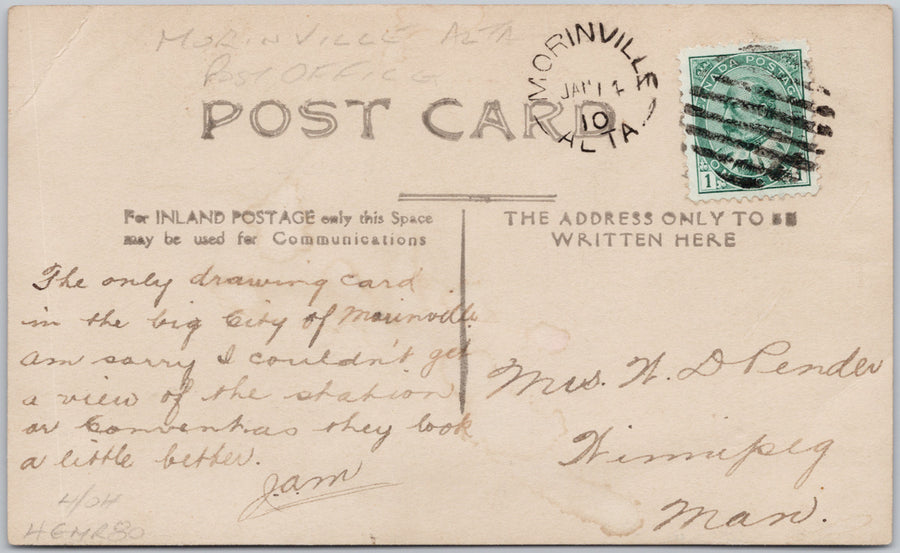 MORINVILLE ALTA
POST OFFICE
MORINVILLE
JAN 14
10
ALTA
CANADA POSTAGE
1
POST CARD
For INLAND POSTAGE only this Space
may be used for Communications
THE ADDRESS ONLY TO BE
WRITTEN HERE
The only drawing card
in the big City of Morinville
am sorry I couldn't get
a view of the station
or Convent as they look
a little better.
J.A.M
Mrs. W. D Pender
Winnipeg
Man.
4/04
HGMR80